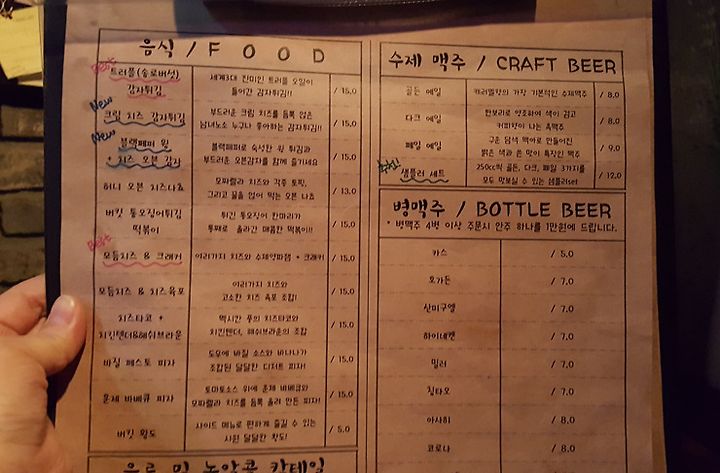 음식 / FOOD
Best
트러플(송로버섯) 감자튀김
세계3대 진미인 트러플 오일이 들어간 감자튀김!!
/ 15.0
New
크림 치즈 감자튀김
부드러운 크림 치즈를 듬뿍 얹은 남녀노소 누구나 좋아하는 감자튀김!!
/ 15.0
New
블랙페퍼 윙 + 치즈 오븐 감자
블랙페퍼로 숙성한 윙 튀김과 부드러운 오븐감자를 함께 즐기세요
/ 15.0
허니 오븐 치즈나쵸
모짜렐라 치즈와 각종 토핑, 그리고 꿀을 얹어 먹는 오븐 나쵸
/ 13.0
버킷 통오징어튀김 떡볶이
튀긴 통오징어 한마리가 통째로 올라간 매콤한 떡볶이!!
/ 15.0
Best
모듬치즈 & 크래커
여러가지 치즈와 수제양파잼 + 크래커
/ 15.0
모듬치즈 & 치즈육포
여러가지 치즈와 고소한 치즈 육포 조합!
/ 15.0
치즈타코 + 치킨텐더&해쉬브라운
멕시칸 풍의 치즈타코와 치킨텐더, 해쉬브라운의 조합
/ 15.0
바질 페스토 피자
도우에 바질 소스와 바나나가 조합된 달달한 디저트 피자!
/ 15.0
훈제 바베큐 피자
토마토소스 위에 훈제 바베큐와 모짜렐라 치즈를 듬뿍 올려 만든 피자!
/ 15.0
버킷 황도
사이드 메뉴로 편하게 즐길 수 있는 시원 달달한 황도!
/ 5.0
음료 및 논알콜 칵테일
수제 맥주 / CRAFT BEER
골든 에일
캐러멜향의 가장 기본적인 수제맥주
/ 8.0
다크 에일
한보리로 양조하여 색이 검고 커피향이 나는 흑맥주
/ 8.0
페일 에일
구운 담색 맥아로 만들어진 밝은 색과 쓴 맛이 특징인 맥주
/ 9.0
추천!
샘플러 세트
250cc씩 골든, 다크, 페일 3가지를 모두 맛보실 수 있는 샘플러set
/ 12.0
병맥주 / BOTTLE BEER
* 병맥주 4병 이상 주문시 안주 하나를 1만원에 드립니다.
카스
/ 5.0
호가든
/ 7.0
산미구엘
/ 7.0
하이네켄
/ 7.0
밀러
/ 7.0
칭타오
/ 7.0
아사히
/ 8.0
코로나
/ 8.0